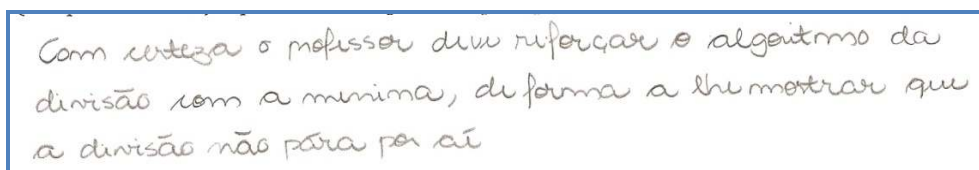 Com certeza o professor deve reforçar o algoritmo da
divisão com a menina, de forma a lhe mostrar que
a divisão não pára por aí